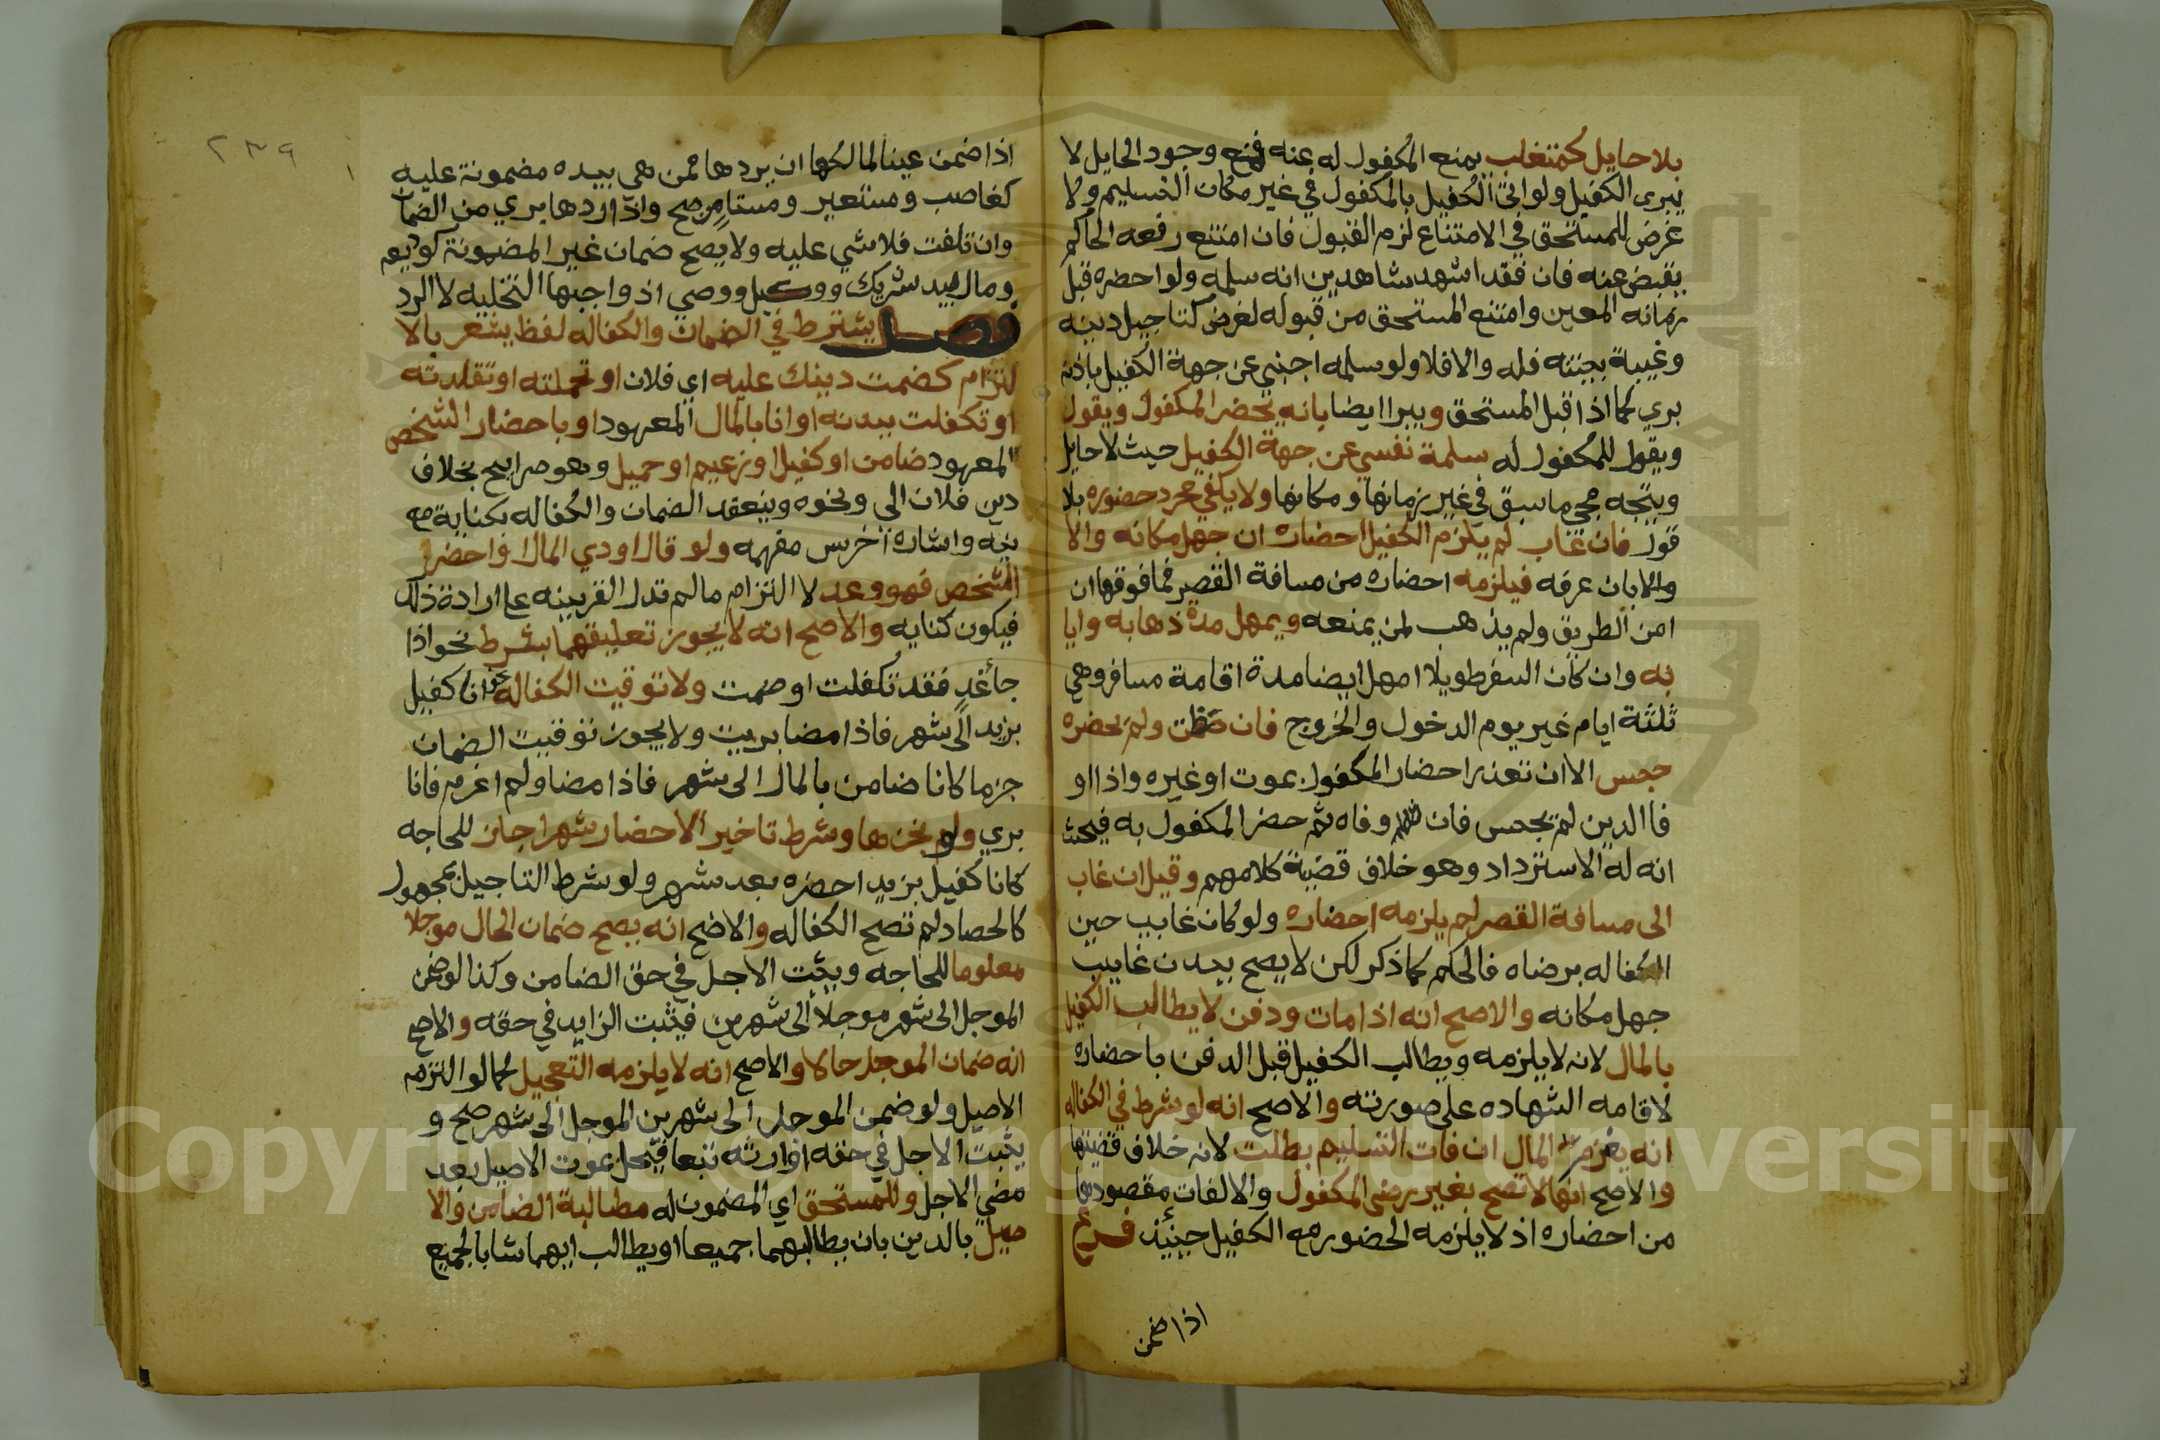 بلا حايل كمتغلب يمنع المكفول له عنه فمع وجود الحايل لا
يبرى الكفيل ولو اتى الكفيل بالمكفول في غير مكان التسليم ولا
غرض للمستحق في الامتناع لزم القبول فان امتنع رفعه الحاكم
يقبض عنه فان فقد اشهد شاهدين انه سلمه ولو احضره قبل
زمانه المعين وامتنع المستحق من قبوله لغرض كتاجيل دينه
وغيبة بينته فله والا فلا ولو سلمه اجنبي عن جهة الكفيل باذنه
بري كما اذا قبل المستحق ويبرا ايضا بانه يحضر المكفول ويقول
ويقول للمكفول له سلمة نفسي عن جهة الكفيل حيث لا حايل
ويتجه مجي ما سبق في غير زمانها ومكانها ولا يكفي مجرد حضوره بلا
قول فان غاب لم يلزم الكفيل احضاره ان جهل مكانه والا
والا بان عرفه فيلزمه احضاره من مسافة القصر فما فوقها ان
امن الطريق ولم يذهب لمن يمنعه ويمهل مدة ذهابه وايا
به وان كان السفر طويلا امهل ايضا مدة اقامة مسافر وهي
ثلثة ايام غير يوم الدخول والخروج فان مضت ولم يحضره
حبس الا ان تعذر احضار المكفول بموت او غيره واذا او
فا الدين لم يحبس فان وفاه ثم حضر المكفول به فيحث
انه له الاسترداد وهو خلاف قضية كلامهم وقيل ان غاب
الى مسافة القصر لم يلزمه احضاره ولو كان غايب حين
الكفاله برضاه فالحكم كما ذكر لكن لا يصح بيدن غايب
جهل مكانه والاصح انه اذا مات ودفن لا يطالب الكفيل
بالمال لانه لا يلزمه ويطالب الكفيل قبل الدفن باحضاره
لاقامه الشهاده على صورته والاصح انه لو شرط في الكفاله
انه يغرم المال ان فات التسليم بطلت لانه خلاف قضيتها
والاصح انها لا تصح بغير رضى المكفول والا لفات مقصودها
من احضاره اذ لا يلزمه الحضور مع الكفيل حينئذ فرع
اذا ضمن
٢٣٩
اذا ضمن عينا لمالكها ان يردها ممن هي بيده مضمونة عليه
كغاصب ومستعير ومستام صح واذا ردها بري من الضمان
وان تلفت فلا شي عليه ولا يصح ضمان غير المضمونة كوديعه
ومال بيد شريك ووكيل ووصي اذ واجبها التخليه لا الرد
فصل يشترط في الضمان والكفاله لفظ يشعر بالا
لتزام كضمت دينك عليه اي فلان او تحملته او تقلدته
او تكفلت ببدنه او انا بالمال المعهود او باحضار الشخص
المعهود ضامن او كفيل او زعيم او حميل وهو صرايح بخلاف
دين فلان الى ونحوه وينعقد الضمان والكفاله بكناية مع
نيه واشاره اخرس مفهمه ولو قال اودي المال او احضر
الشخص فهو وعد لا التزام ما لم تدل القرينه على ارادة ذلك
فيكون كنايه والاصح انه لا يجوز تعليقهما بشرط نحو اذا
جا غد فقد تكفلت او ضمت ولا توقيت الكفاله نحو انا كفيل
بزيد الى شهر فاذا مضا بريت ولا يجوز توقيت الضمان
جزما كانا ضامن بالمال الى شهر فاذا مضا ولم اغرم فانا
بري ولو نجزها وشرط تاخير الاحضار شهرا جاز للحاجه
كانا كفيل بزيد احضره بعد شهر ولو شرط التاجيل بمجهول
كالحصاد لم تصح الكفاله والاصح انه يصح ضمان الحال موجلا
معلوما للحاجه ويثبت الاجل في حق الضامن وكذا لو ضمن
الموجل الى شهر موجلا الى شهرين فيثبت الزايد في حقه والاصح
انه ضمان الموجل حالا والاصح انه لا يلزمه التعجيل كما لو التزمه
الاصيل ولو ضمن الموجل الى شهرين الموجل الى شهر صح و
يثبت الاجل في حقه او ارثه تبعا فيحل بموت الاصيل بعد
مضي الاجل وللمستحق اي المضمون له مطالبة الضامن والا
صيل بالدين بان يطالبهما جميعا او يطالب ايهما شا بالجميع
Copyright © King Saud University